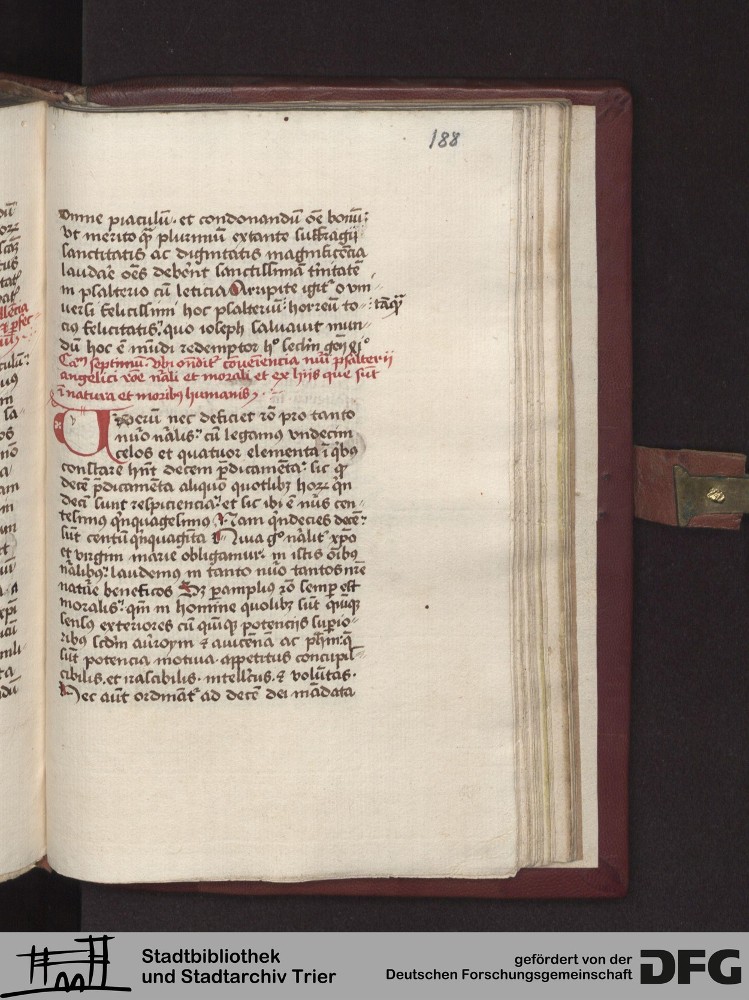 188
omne piaculū · et condonandū oē bonū :
vt merito qͣ plurimū extante suffragii
sanctitatis ac dignitatis magnificēcia
laudāē oēs debēnt sanctissimā t͛nitatē
in psalterio cū leticia Arripite igit͛ o vni
uersi felicissimi hoc psalteriū : horreū to
cius felicitatis : quo ioseph saluauit mun
dū hoc ē mūdi redemptor
Caᵐ septimū . Vbi oñditͬ cōueniencia nūi psalterii
angelici rōe nāli et morali et ex hiis que sūt
ī natura et moribꝰ humanis
Verū nec deficiet rō pro tanto
nūo nālis : cū legamus vndecim
celos et quatuor elementa ī qͥbꝰ
constare hn̄t decem p̄dicamēta : sic qͩ
decē p̄dicamēta aliquo quotlibꝫ hoꝝ qͥn
deci sunt respiciencia : et sic ibi ē nūs cen
tesimus qͥnquagesimus Nam qͥndecies decē :
sūt centū qͥnquagīta Quia gͦ nālitͬ xp̄o
et virgini marie obligamur in istis oībus
nālibꝰ : laudemus in tanto nūo tantos nr̄e
nature beneficos Sꝫ ꝑamplius rō semꝑ est
moralis : qm̄ in homine quolibꝫ sūt qͥnqꝫ
sensꝰ exteriores cū qͥnqꝫ potenciis suꝑio
ribꝰ scd̄m auroym ⁊ auicēnā ac ph̄m : qͣ
sūt potencia motiua · appetitus concupis
cibilis · et irascibilis · intellc̄tus · ⁊ volūtas ·
Hec aūt ordinātͬ ad decē dei mādata
Stadtbibliothek
und Stadtarchiv Trier
gefördert von der
Deutschen Forschungsgemeinschaft
DFG